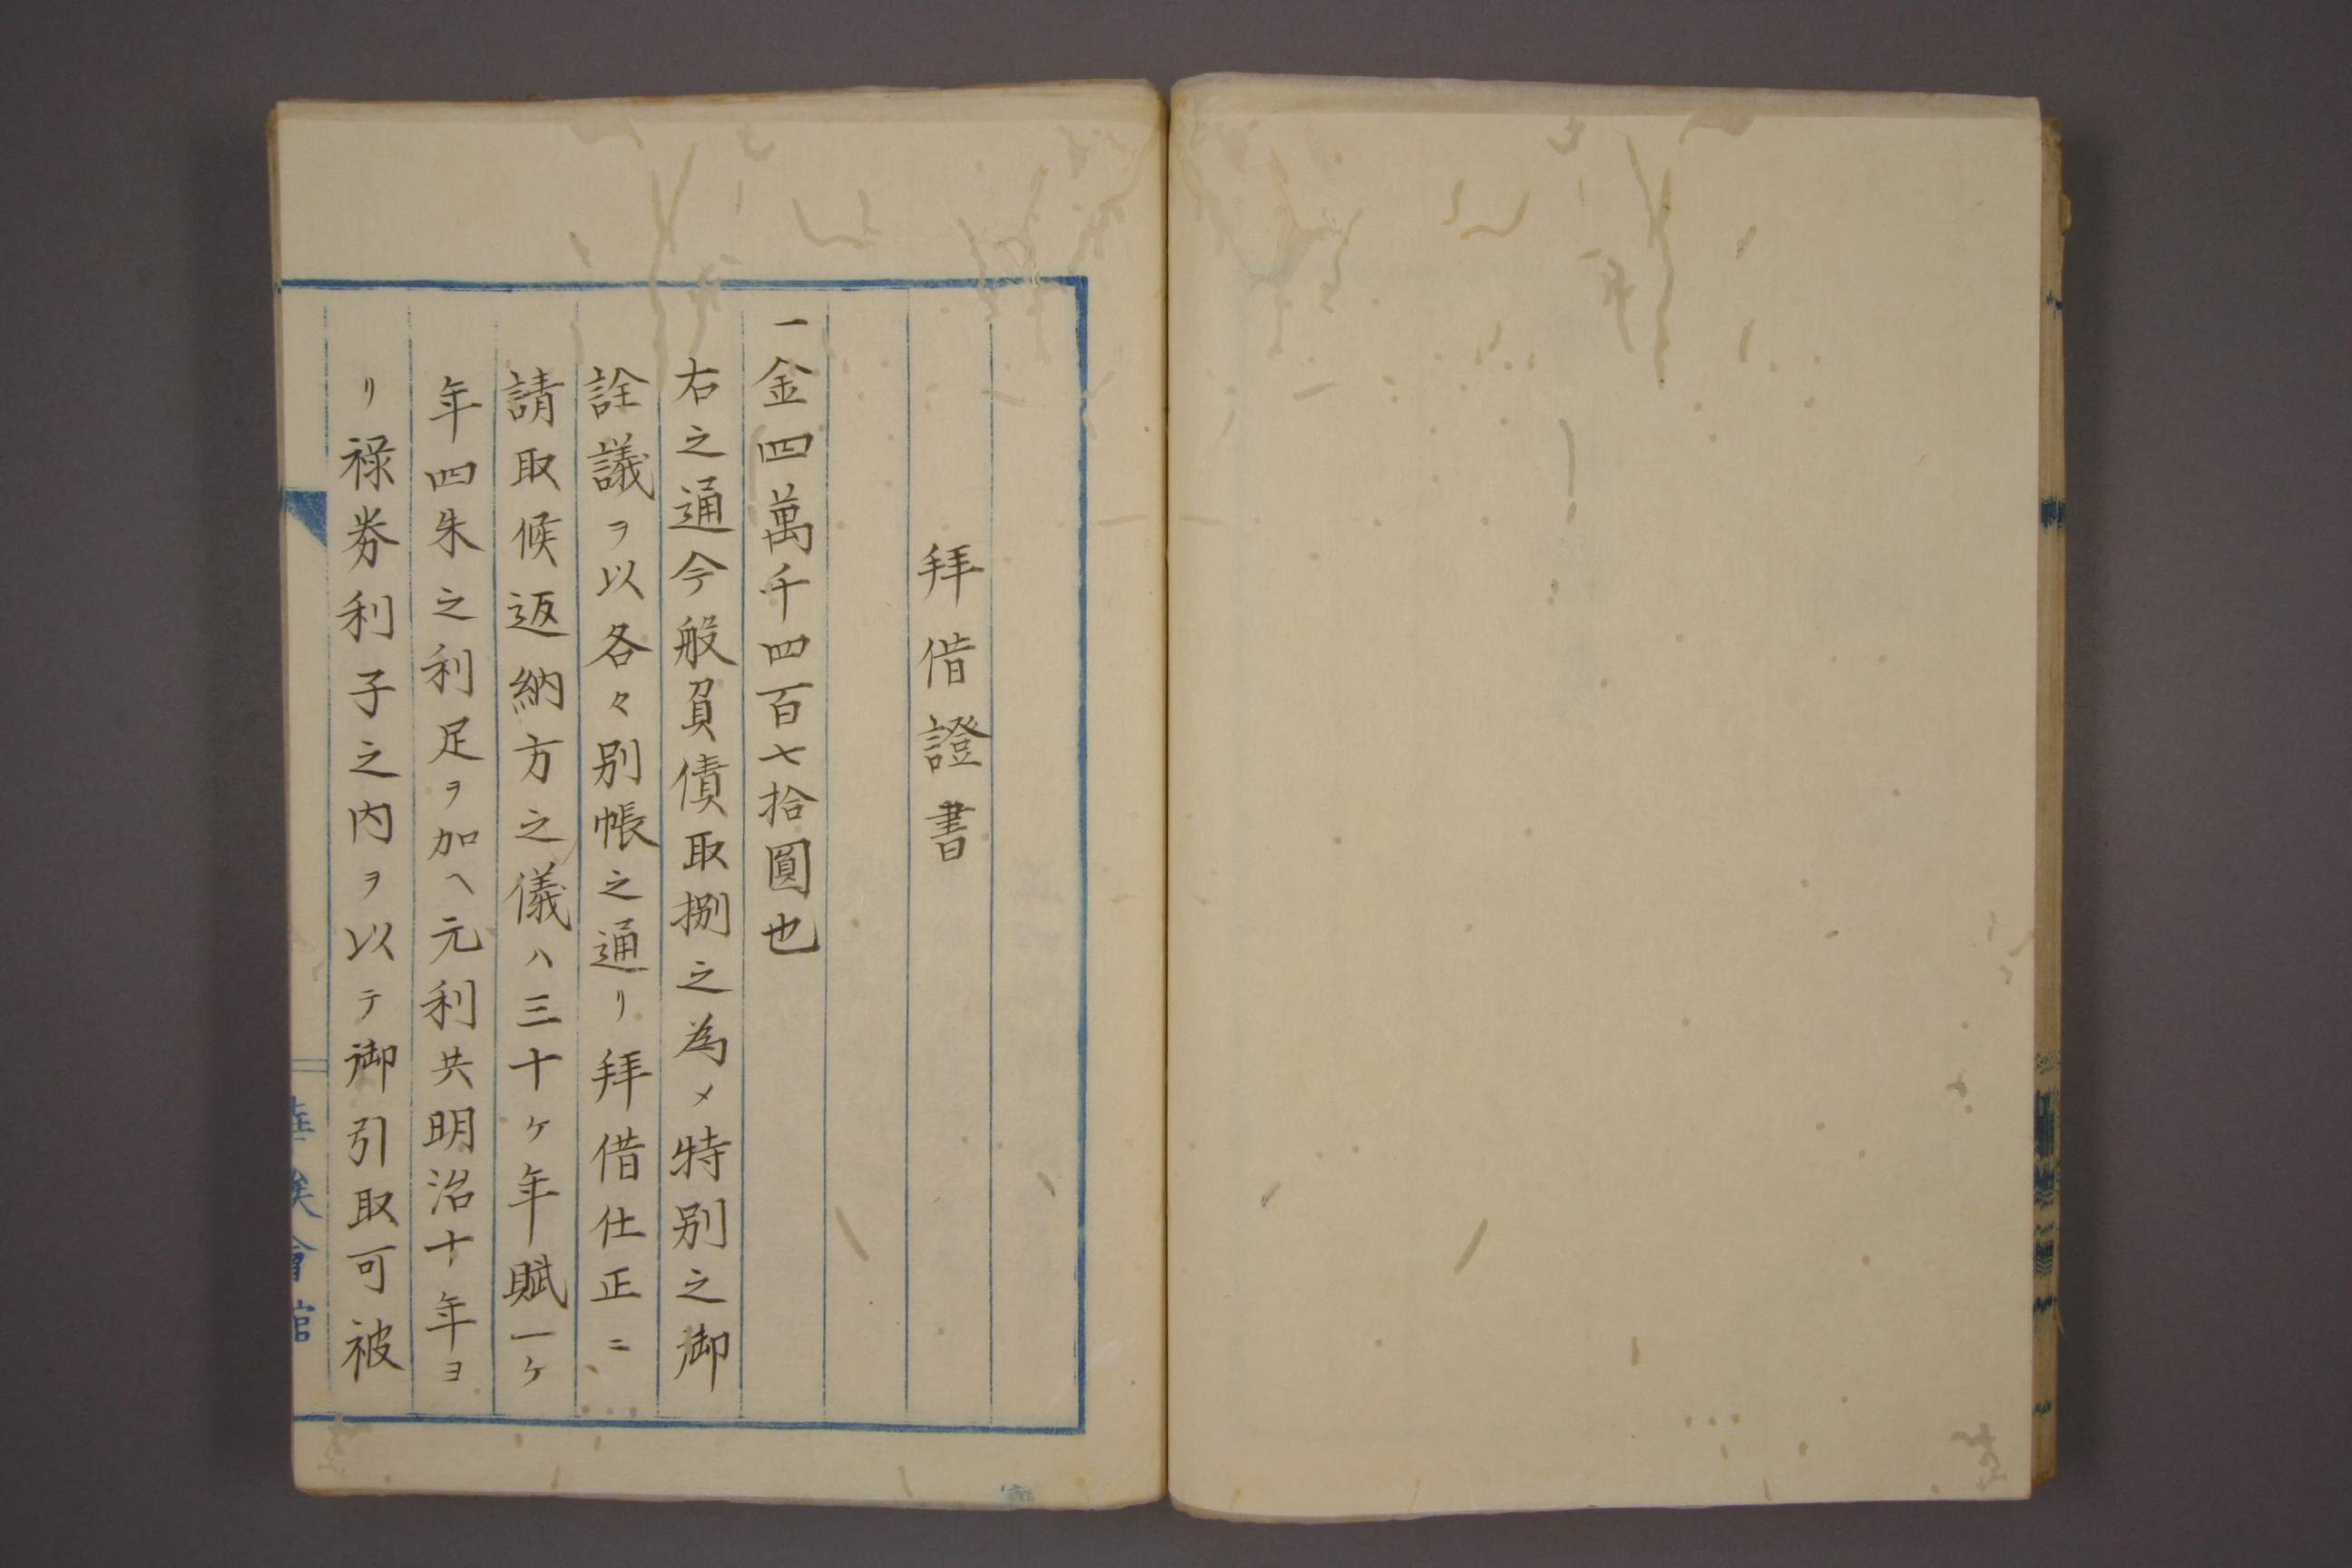 拜借證書
一金四萬千四百七拾圓也
右之通今般負債取捌之為メ特別之御
詮議ヲ以各々別帳之通リ拜借仕正ニ
請取候返納方之儀ハ三十ケ年賦一ケ
年四朱之利足ヲ加ヘ元利共明治十年ヨ
リ禄劵利子之内ヲ以テ御引取可被
華族會館